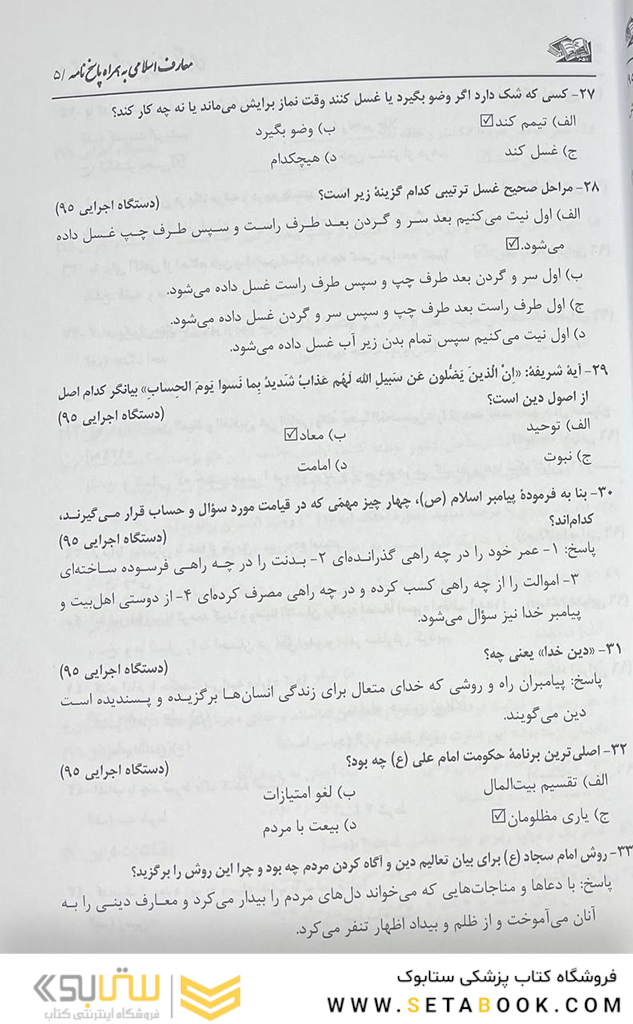 معارف اسلامی به همراه پاسخ نامه /۵
۲۷- کسی که شک دارد اگر وضو بگیرد یا غسل کنند وقت نماز برایش می‌ماند یا نه چه کار کند؟
الف) تیمم کند☑ ب) وضو بگیرد
ج) غسل کند د) هیچکدام
۲۸- مراحل صحیح غسل ترتیبی کدام گزینهٔ زیر است؟ (دستگاه اجرایی ۹۵)
الف) اول نیت می‌کنیم بعد سر و گردن بعد طرف راست و سپس طرف چپ غسل داده
می‌شود.☑
ب) اول سر و گردن بعد طرف چپ و سپس طرف راست غسل داده می‌شود.
ج) اول طرف راست بعد طرف چپ و سپس سر و گردن غسل داده می‌شود.
د) اول نیت می‌کنیم سپس تمام بدن زیر آب غسل داده می‌شود.
۲۹- آیهٔ شریفهٔ: «اِنْ الّذینَ یَضُلون عَن سَبیلِ الله لَهُم عَذابُ شَدیدُ بِما نَسوا یَومَ الحِساب» بیانگر کدام اصل
از اصول دین است؟ (دستگاه اجرایی ۹۵)
الف) توحید ب) معاد☑
ج) نبوت د) امامت
۳۰- بنا به فرمودهٔ پیامبر اسلام (ص)، چهار چیز مهمی که در قیامت مورد سؤال و حساب قرار می‌گیرند،
کدام‌اند؟ (دستگاه اجرایی ۹۵)
پاسخ: ۱- عمر خود را در چه راهی گذرانده‌ای ۲- بدنت را در چه راهی فرسوده ساخته‌ای
۳- اموالت را از چه راهی کسب کرده و در چه راهی مصرف کرده‌ای ۴- از دوستی اهل‌بیت و
پیامبر خدا نیز سؤال می‌شود.
۳۱- «دین خدا» یعنی چه؟ (دستگاه اجرایی ۹۵)
پاسخ: پیامبران راه و روشی که خدای متعال برای زندگی انسان‌ها برگزیده و پسندیده است
دین می‌گویند.
۳۲- اصلی‌ترین برنامهٔ حکومت امام علی (ع) چه بود؟ (دستگاه اجرایی ۹۵)
الف) تقسیم بیت‌المال ب) لغو امتیازات
ج) یاری مظلومان☑ د) بیعت با مردم
۳۳- روش امام سجاد (ع) برای بیان تعالیم دین و آگاه کردن مردم چه بود و چرا این روش را برگزید؟
پاسخ: با دعاها و مناجات‌هایی که می‌خواند دل‌های مردم را بیدار می‌کرد و معارف دینی را به
آنان می‌آموخت و از ظلم و بیداد اظهار تنفر می‌کرد.
فروشگاه کتاب پزشکی ستابوک
WWW.SETABOOK.COM
ستابوک
فروشگاه اینترنتی کتاب